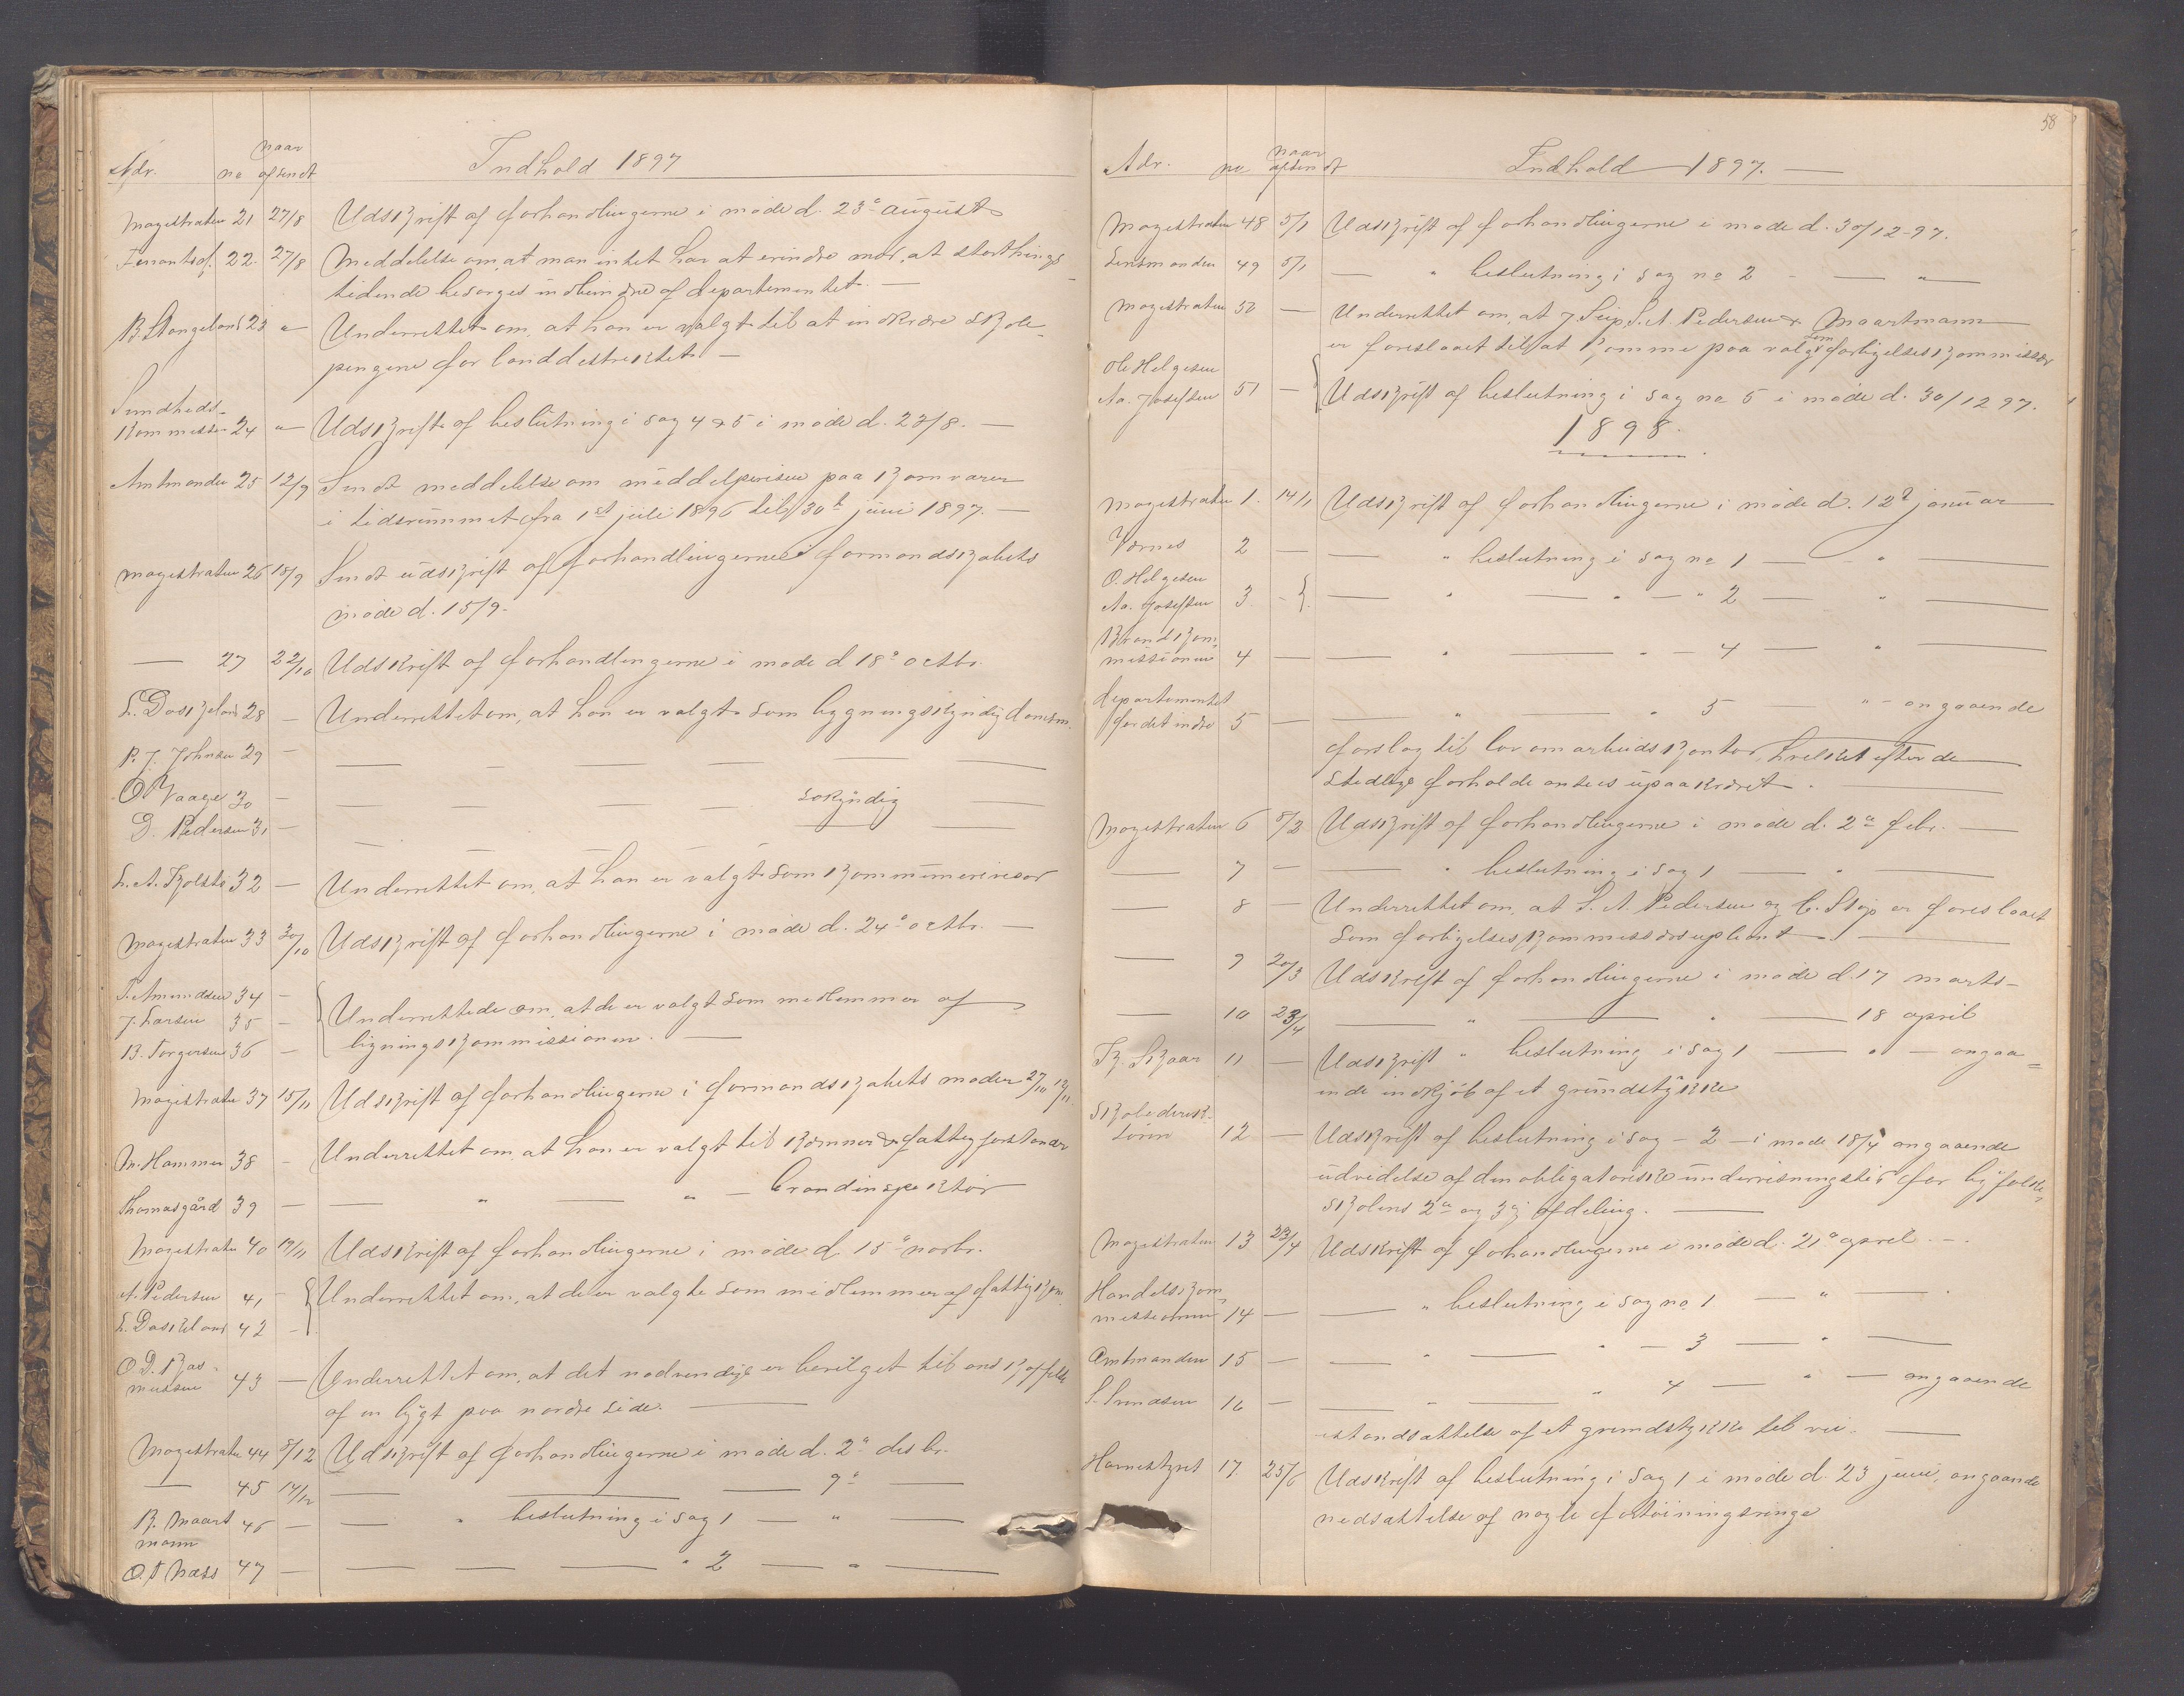 Adr. no naar afsendt Indhold 1897
Magistraten 21 27/8 Udskrift af forhandlingerne i møde d. 23de august
22. 27/8 Meddelelse om, at man intet har at erindre mod, at storthings-
tidende besørges indbindne af departementet. —
B. Stangeland 23 " Underrettet om, at han er valgt til at indkræve skole-
pengene for landdistriktet —
Sundheds-
kommission 24 " Udskrift af beslutning i sag 4 & 5 i møde d. 23/8. —
Amtmanden 25 12/9 Sendt meddelelse om middelprisen paa kornvarer
i tidsrummet fra 1st juli 1896 til 30te juni 1897. —
Magistraten 26 18/9 Sendt udskrift af forhandlingerne i formandskabets
møde d. 15/9.
— 27 22/10 Udskrift af forhandlingerne i møde d 18de octbr.
L. Daskeland 28 — Underrettet om, at han er valgt som bygningskyndig domsm.
P. J. Johnsen 29 — — — — — — —
O Vaage 30 — — — — — søkyndig —
D. Pedersen 31 — — — — — — —
L. A. 32 — Underrettet om, at han er valgt som kommunerevisor
Magistraten 33 30/10 Udskrift af forhandlingerne i møde d. 24de octbr. —
T. Amundsen 34 — Underrettede om, at de er valgt som medlemmer af
J. Larsen 35 — ligningskommissionen. —
B. Torgersen 36 —
Magistraten 37 15/11 Udskrift af forhandlingerne i formandskabets møder 27/10 12/11.
M. Hammer 38 — Underrettet om, at han er valgt til kæmner & fattigforstander
Thomasgård 39 — — " — " — brandinspektør
Magistraten 40 17/11 Udskrift af forhandlingerne i møde d. 15de novbr.
A. Pedersen 41 — Underrettet om, at de er valgte som medlemmer af fattigkom
L. Daskeland 42 —
O. D. Ras-
mussen 43 — Underrettet om, at det nødvendige er bevilget til anskaffelse
af en lygt paa nordre side. —
Magistraten 44 8/12 Udskrift af forhandlingerne i møde d. 2de desbr.
— 45 14/12 — — — 9de —
B. Maart
mann 46 — — " beslutning i sag 1 — " —
O. T Næss 47 — — — — " 2 — " —
58
Adr. no naar afsendt Indhold 1897. —
Magistraten 48 5/1 Udskrift af forhandlingerne i møde d. 30/12-97.
Lensmanden 49 5/1 — " beslutning i sag no 2 — — "
Magistraten 50 — Underrettet om, at J. Seip, S. A. Pedersen & Maartmann
er foreslaaet til at komme paa valg som forligelseskommissær
Ole Helgesen
Aa. Josefsen 51 — Udskrift af beslutning i sag no 5 i møde d. 30/12 97.
1898.
Magistraten 1. 14/1 Udskrift af forhandlingerne i møde d. 12te januar
Værnes 2 — — " beslutning i sag no 1 — " —
O. Helgesen
Aa. Josefsen 3 — — " — " — " 2 — " —
Brandkom-
missionen 4 — — " — " — 4 — " —
departementet
for det indre 5 — — " — " 5 " — angaaende
forslag til lov om arbeidskontor, hvilket efter de
stedlige forholde ansees upaakrævet. —
Magistraten 6 5/2 Udskrift af forhandlingerne i møde d. 2de febr. —
— 7 — — " beslutning i sag 1 — " —
— 8 — Underrettet om, at S. A. Pedersen og C. Stop er foreslaaet
som forligelseskommissærsupleant —
— 9 20/3 Udskrift af forhandlingerne i møde d. 17 marts —
— 10 23/4 — " — " — 18 april
Skaar 11 — Udskrift " beslutning i sag 1 — " — angaa-
ende indkjøb af et grundstykke
Skoledirek-
tøren 12 — Udskrift af beslutning i sag — 2 — i møde 18/4 angaaende
udvidelse af den obligatoriske undervisningstid for byfolke-
skolens 2de og 3die afdeling. —
Magistraten 13 23/4 Udskrift af forhandlingerne i møde d. 21de april —.
Handelskom-
missionen 14 — — " beslutning i sag no 1 — " —
Amtmanden 15 — — " — " — 3 — " —
S. Svendsen 16 — — " — " 4 — " — angaaende
istandsættelse af et grundstykke til vei. —
Havnestyret 17 25/6 Udskrift af beslutning i sag 1 i møde d. 23 juni, angaaende
nedsættelse af nogle fortøiningsringe